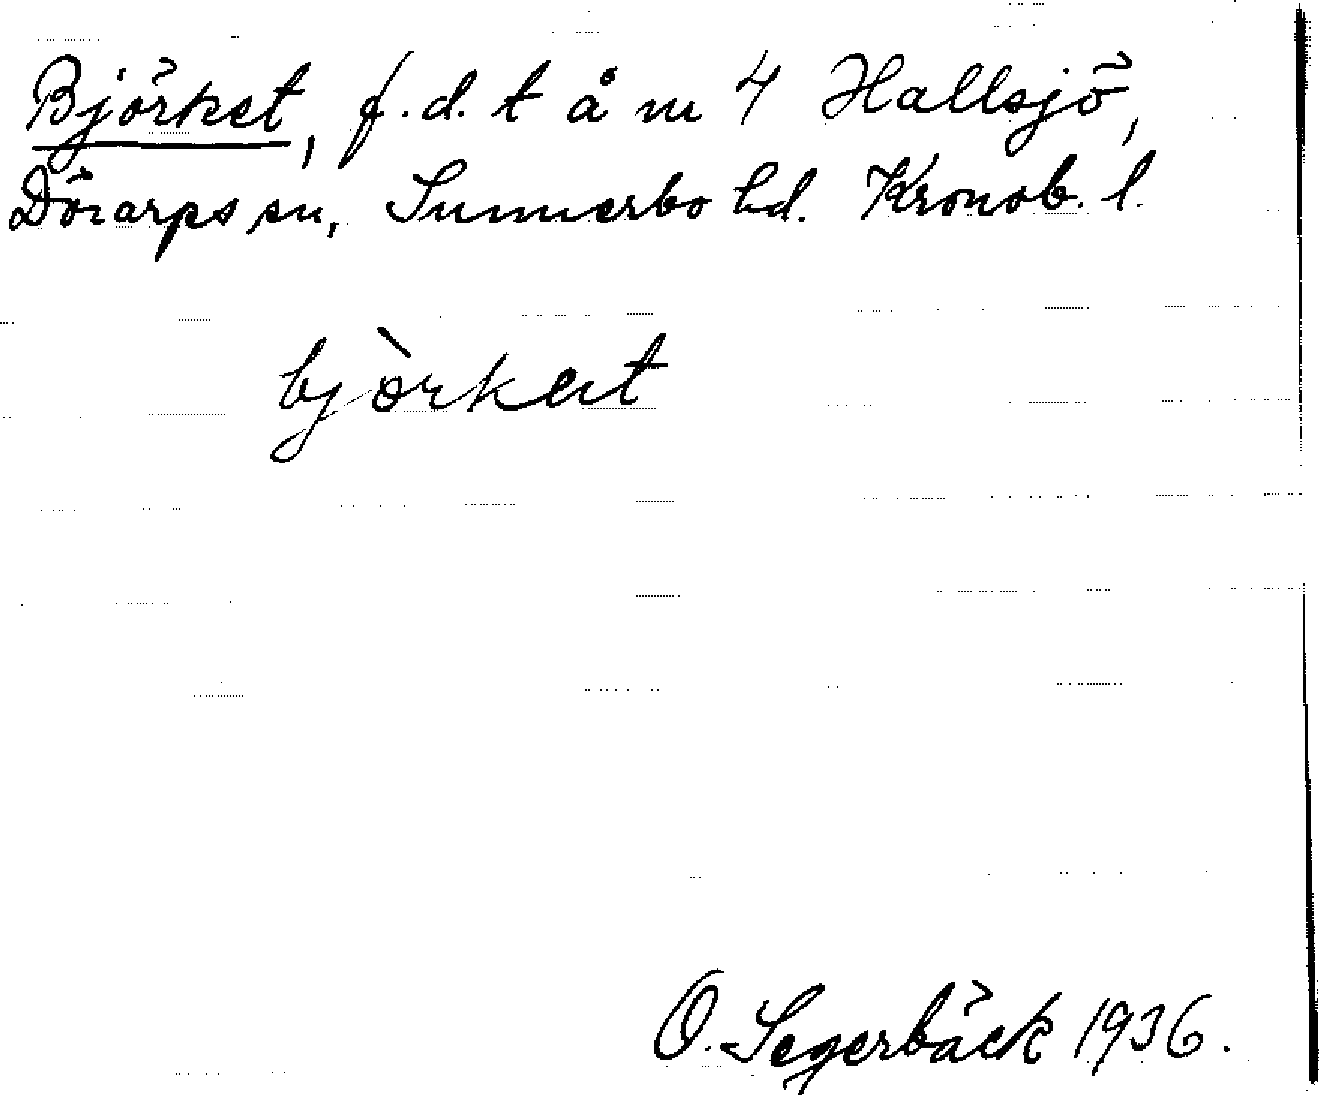 Björket, f.d. t å nr 4 Hallsjö,
Dörarps sn, Sunnerbo hd. Kronob. l.
bjòrkət
O. Segerbäck 1936.